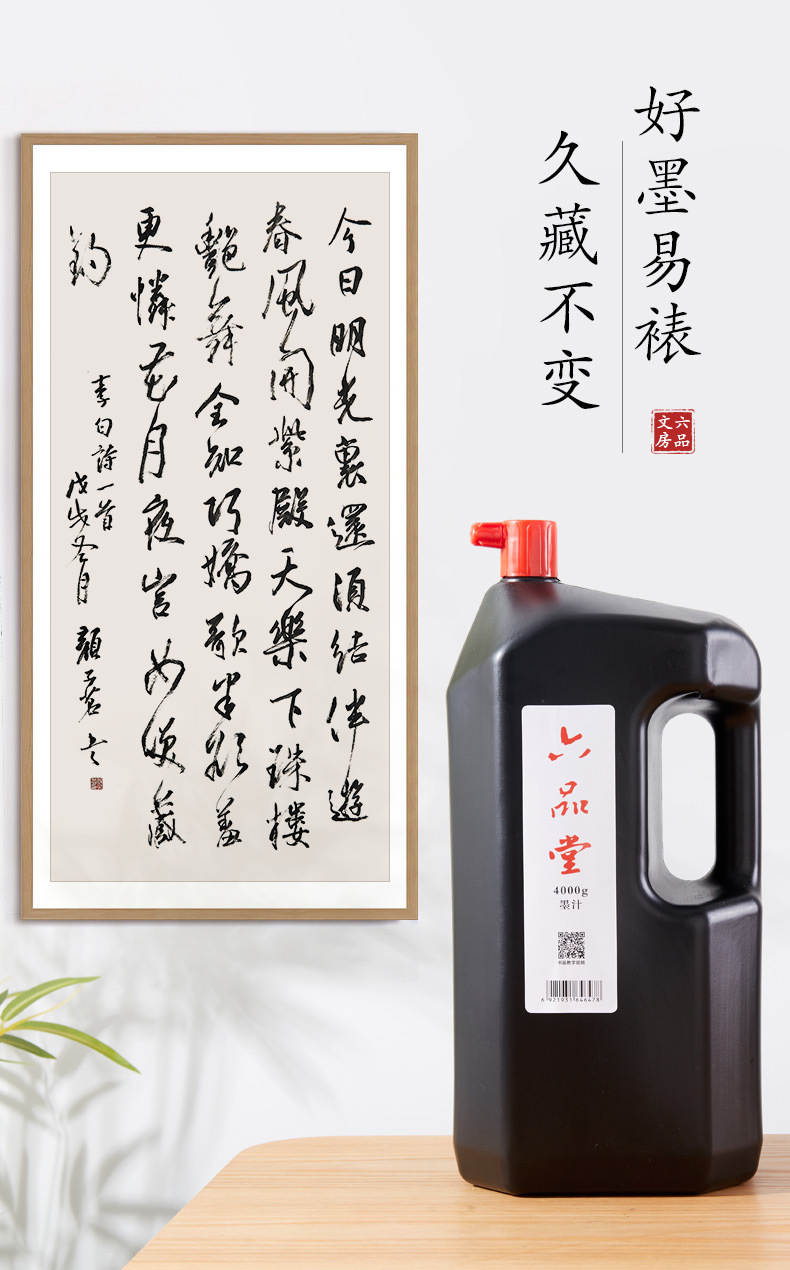 好墨易裱
久藏不变
六品
文房
今日明光裏還須結伴遊
春風開紫殿天樂下珠樓
豔舞全知巧嬌歌半欲羞
更憐花月夜宮女笑藏
鈎
李白詩一首
戊戌冬月
六品堂
4000g
墨汁
书画教学视频
6 921931 646478